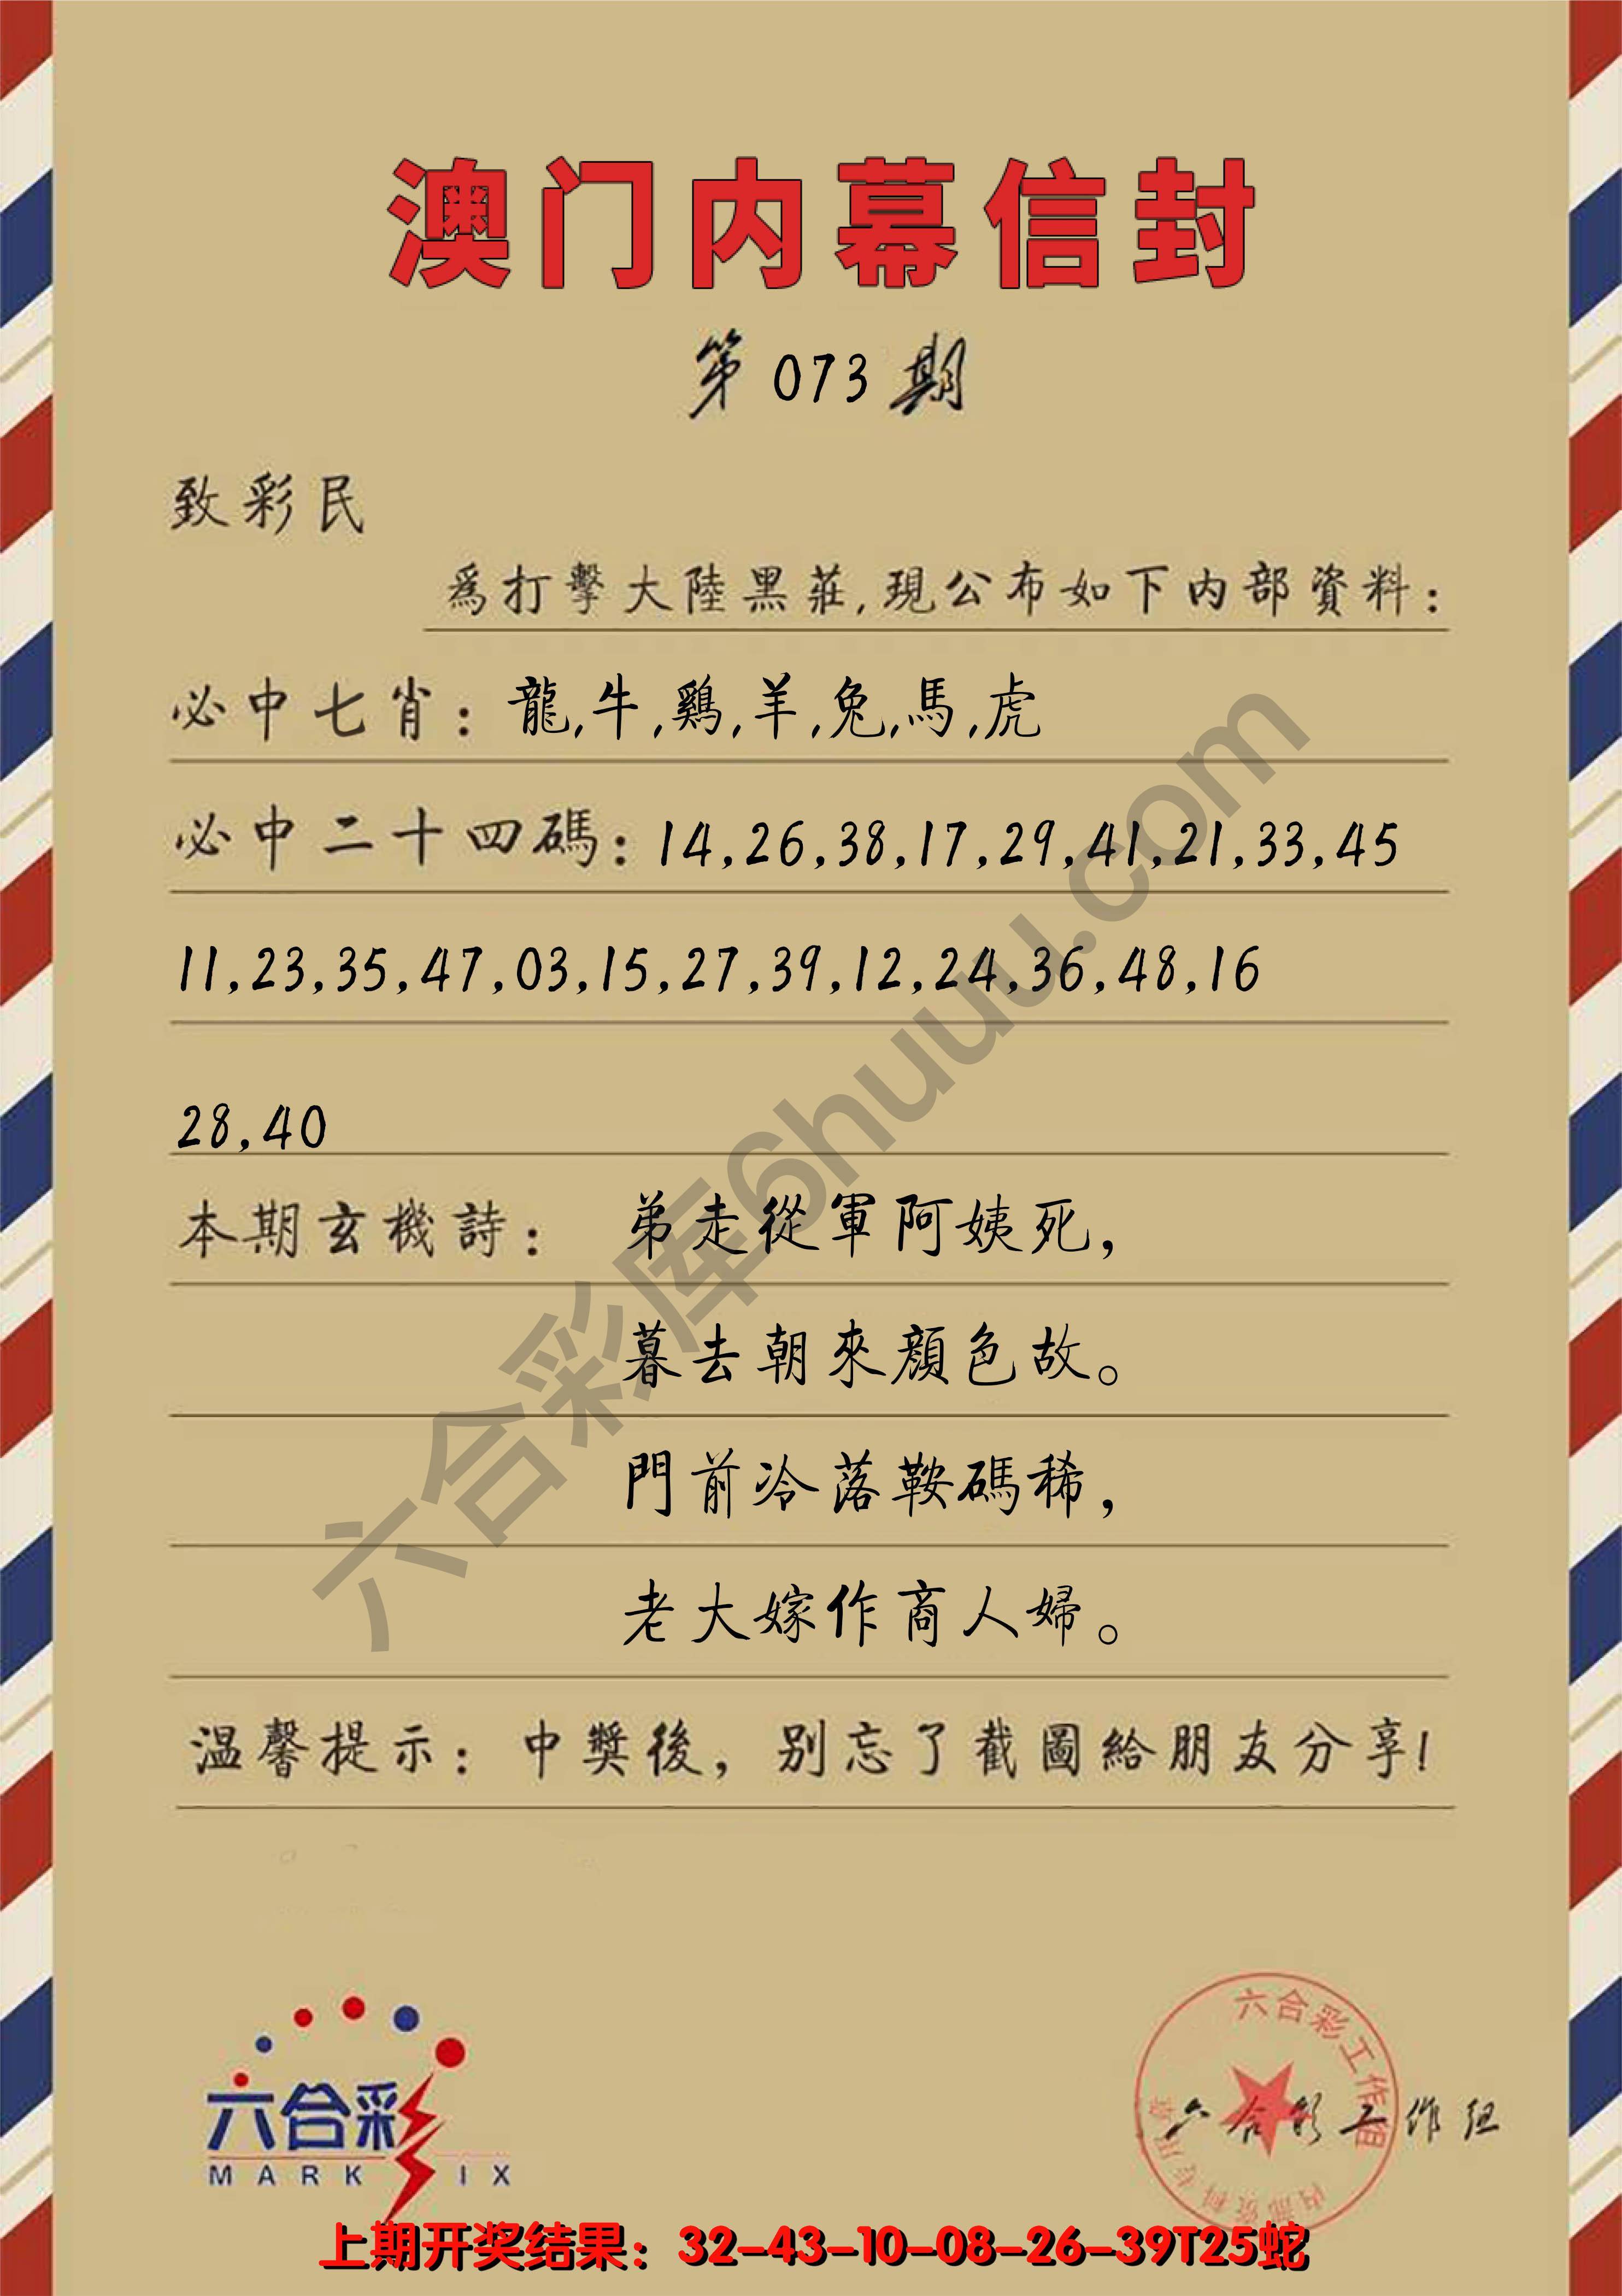 澳门内幕信封
第073期
致彩民
為打擊大陸黑莊,現公布如下内部資料:
必中七肖: 龍,牛,鷄,羊,兔,馬,虎
必中二十四碼: 14,26,38,17,29,41,21,33,45
11,23,35,47,03,15,27,39,12,24,36,48,16
28,40
本期玄機詩: 弟走從軍阿姨死,
暮去朝來顏色故。
門前冷落鞍碼稀,
老大嫁作商人婦。
温馨提示: 中獎後, 别忘了截圖給朋友分享!
六合彩库6huuu.com
六合彩
MARK IX
六合彩工作组
六合彩工作组
上期开奖结果: 32-43-10-08-26-39T25蛇